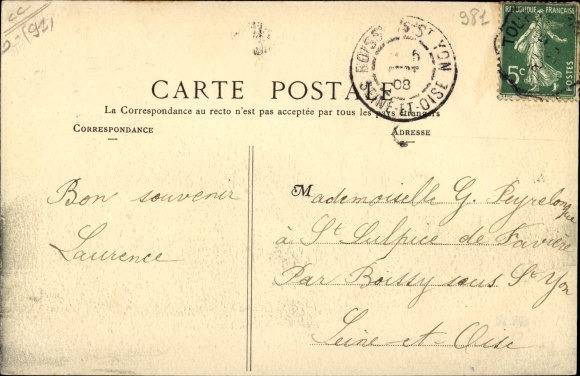 CC
(91)
981
RÉPUBLIQUE FRANÇAISE
5c
TOU
BOISSY-S-ST YON
6
08
SEINE-ET-OISE
CARTE POSTALE
La Correspondance au recto n'est pas acceptée par tous les pays étrangers
CORRESPONDANCE
ADRESSE
Bon souvenir
Laurence
Mademoiselle G. Peyrelongue
à St Sulpice de Favière
Par Boissy sous St Yon
Seine-et-Oise